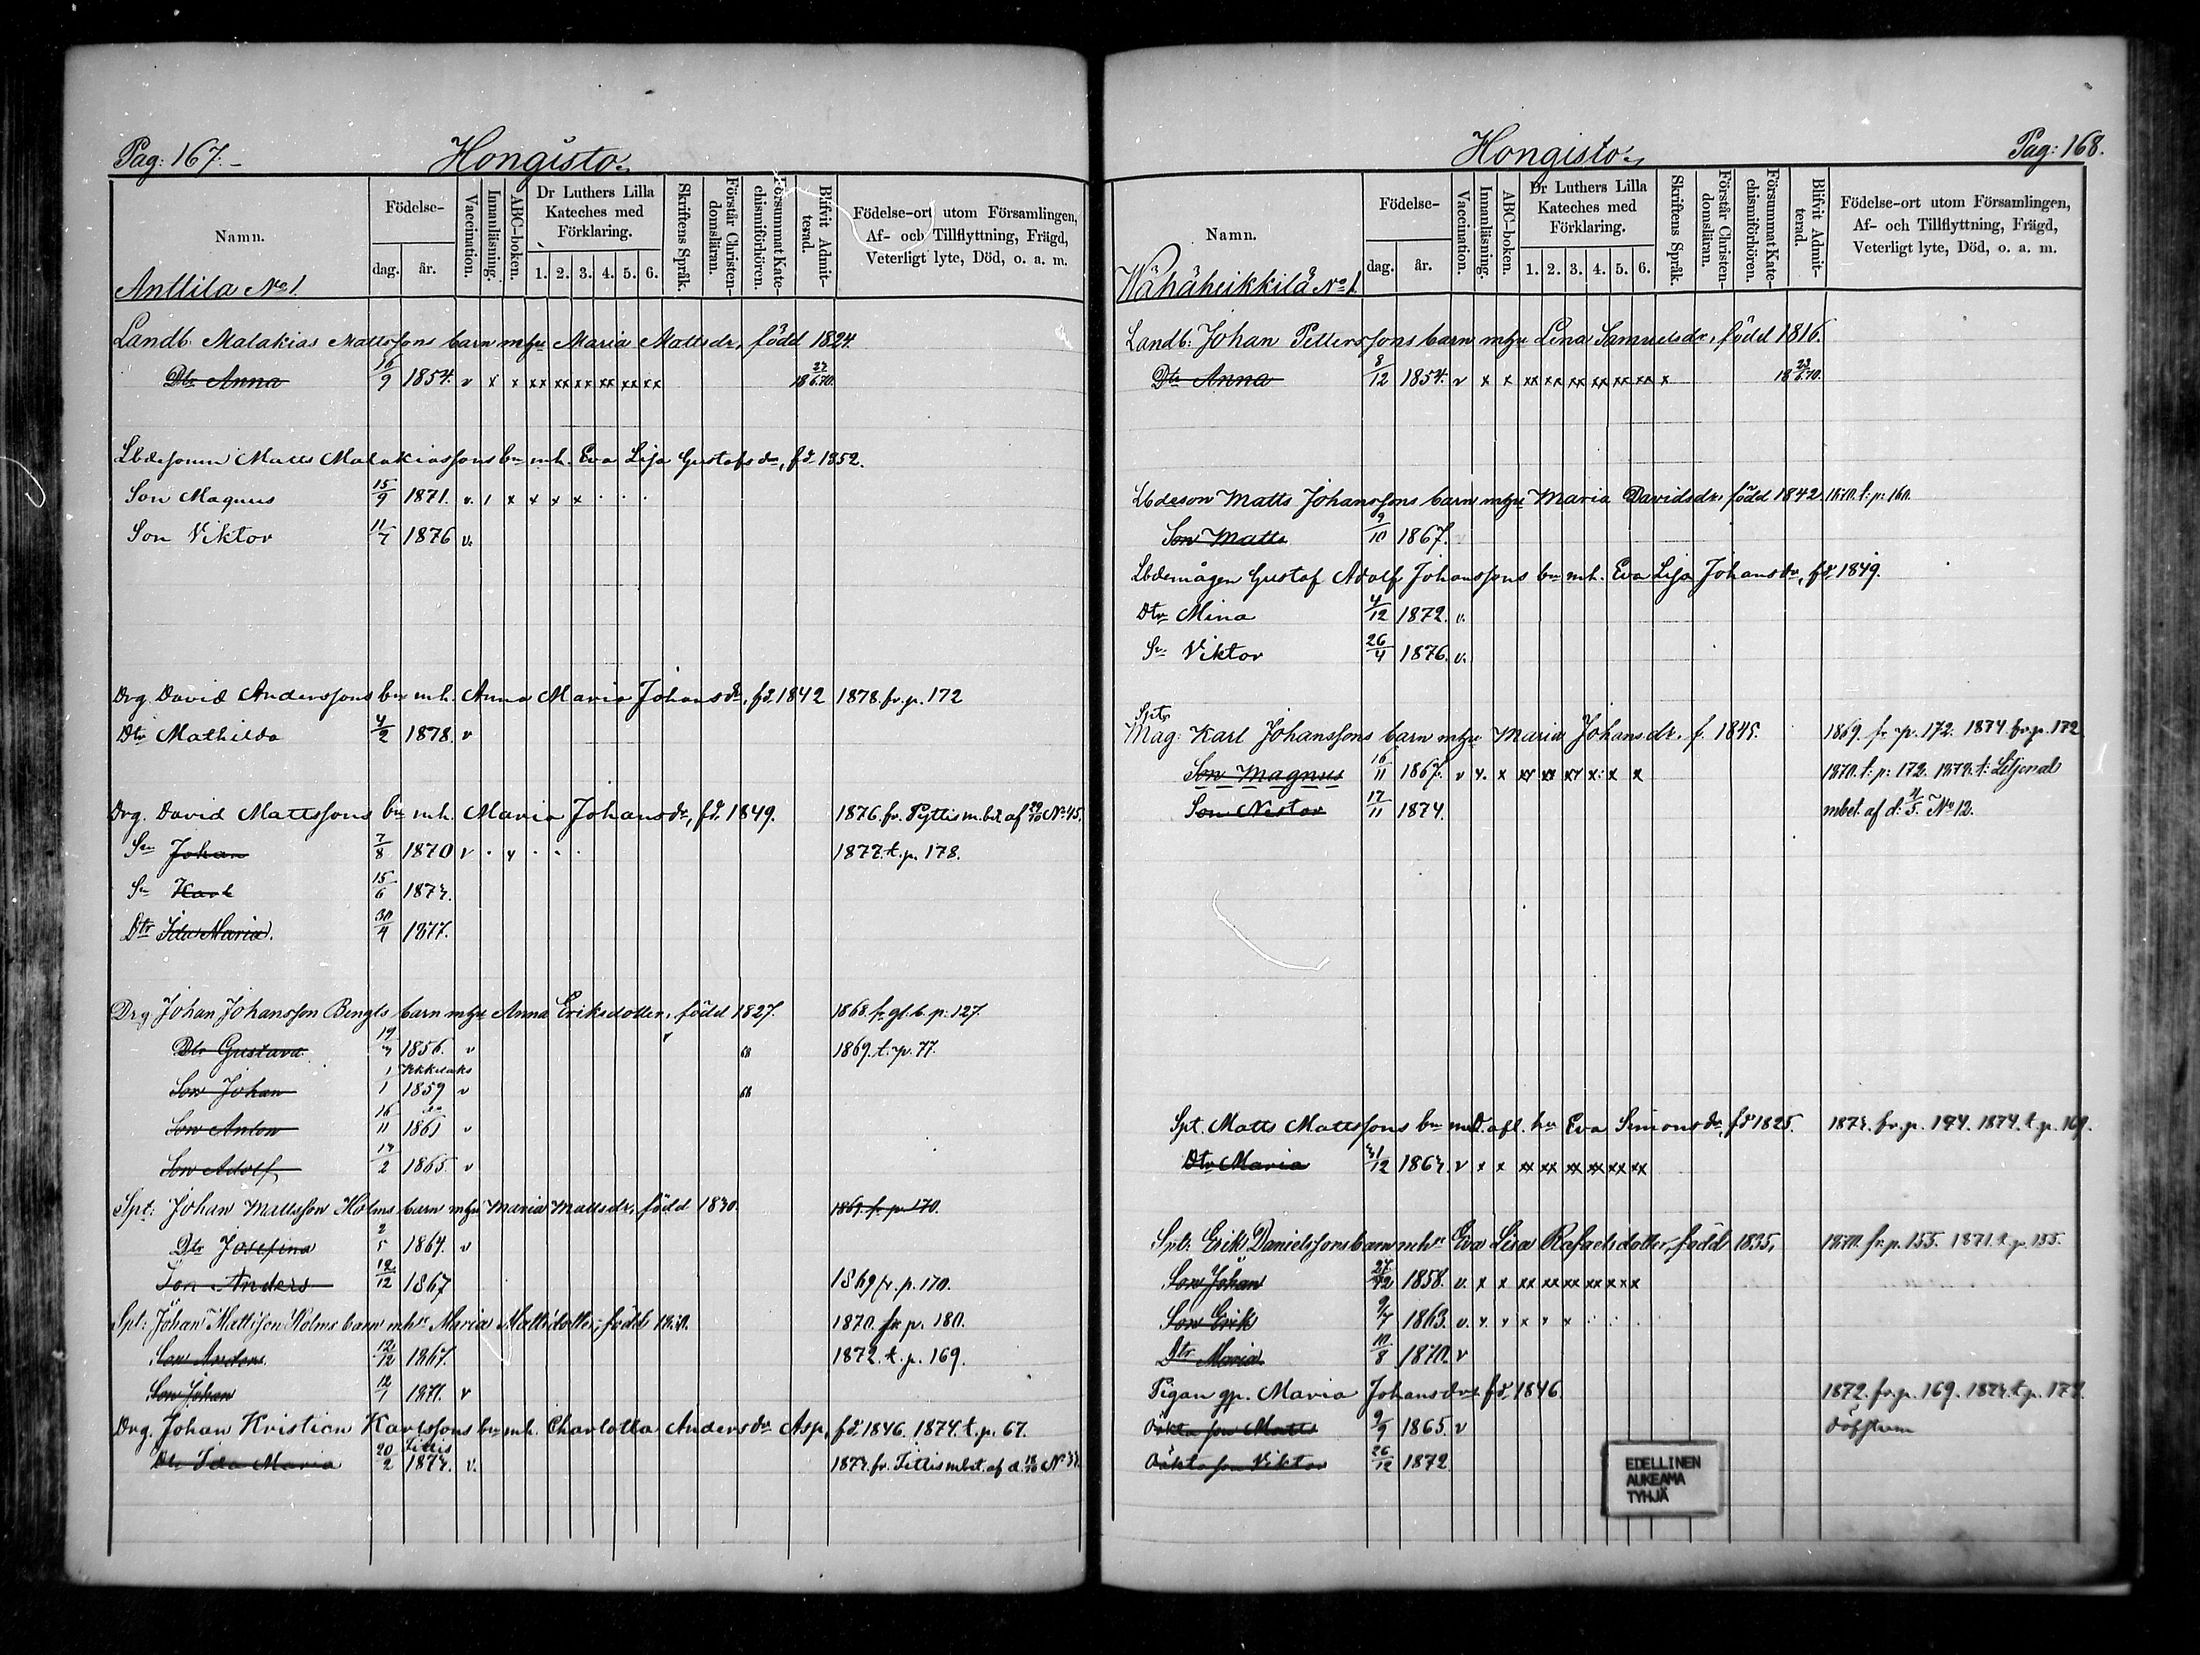 Pag: 167.
Hongisto
Namn.
Födelse-
dag. år.
Vaccination.
Innanläsning.
ABC-boken.
Dr Luthers Lilla Kateches med Förklaring.
1. 2. 3. 4. 5. 6.
Skriftens Språk.
Förstår Christendomsläran.
Försummat Katechismiförhören.
Blifvit Admitterad.
Födelse-ort utom Församlingen, Af- och Tillflyttning, Frägd, Veterligt lyte, Död, o. a. m.
Anttila No 1.
Landb. Malakias Mattssons barn m hu Maria Mattsdr, född 1824.
Dtr Anna 16/9 1854. v x x xx xx xx xx xx xx 18 22/6 70.
Lbdesonen Matts Malakiassons bn m.h. Eva Lisa Gustafsdr, fd. 1852.
Son Magnus 15/9 1871. v. / x x x x . . .
Son Viktor 11/7 1876 v.
Drg. David Anderssons bn m.h. Anna Maria Johansdr, fd. 1842 1878. fr. p. 172
Dtr Mathilda 4/2 1878. v
Drg. David Mattssons bn m.h. Maria Johansdr, fd. 1849. 1876. fr. Pyttis m. bet. af 29/10 No 45.
Sn Johan 7/8 1870 v . y . . . 1877. t. p. 178.
Sn Karl 15/6 1873.
Dtr Ida Maria. 30/4 1877.
Drg Johan Johansson Bengts barn m hu Anna Eriksdotter, född 1827. 1868. fr gl. b. p. 127.
Dtr Gustava 19/3 1856. v 68 1869. t. p. 77.
Son Johan 1/1 1859 v 68
Son Anton 16/11 1861 v
Son Adolf 17/2 1865. v
Spt: Johan Mattsson Holms barn m hu Maria Mattsdr, född 1830. 1869. fr. p. 170.
Dtr Josefina 2/5 1864. v
Son Anders 12/12 1867 1869 fr. p. 170.
Spt: Johan Mattsson Holms barn m hu Maria Mattsdotter, född 1830. 1870. fr p. 180.
Son Anders. 12/12 1867. 1872. t. p. 169.
Son Johan 12/1 1871. v
Drg. Johan Kristian Karlssons bn m.h. Charlotta Andersdr Asp, fd. 1846. 1874. t. p. 67.
Dtr Ida Maria 20/2 Iittis 1873. v. 1873. fr. Iittis m bet. af d. 18/10 No
Pag: 168.
Hongisto
Namn.
Födelse-
dag. år.
Vaccination.
Innanläsning.
ABC-boken.
Dr Luthers Lilla Kateches med Förklaring.
1. 2. 3. 4. 5. 6.
Skriftens Språk.
Förstår Christendomsläran.
Försummat Katechismiförhören.
Blifvit Admitterad.
Födelse-ort utom Församlingen, Af- och Tillflyttning, Frägd, Veterligt lyte, Död, o. a. m.
Wähäheikkilä No 1.
Landb: Johan Petterssons barn m hu Lena Samuelsdr, född 1816.
Dtr Anna 8/12 1854. v x x xx xx xx xx xx xx x 18 22/6 70.
Lbdeson Matts Johanssons barn m hu Maria Davidsdr, född 1842. 1870. t: p: 160.
Son Matts 9/10 1867.
Lbdemågen Gustaf Adolf Johanssons bn m.h. Eva Lisa Johansdr, fd. 1849.
Dtr Mina 4/12 1872. v.
Sn Viktor 26/4 1876. v.
Sptr
Mag: Karl Johanssons barn m hu Maria Johansdr. f. 1845. 1869. fr p. 172. 1874. fr p. 172
Son Magnus 16/11 1867. v v. x xx xx xx x: x x 1870. t: p: 172. 1873. t: Liljendal
Son Nestor 17/11 1874. mbet. af d: 4/5. No 12.
Spt. Matts Mattssons bn m D. afl. hu Eva Simonsdr, fd 1825. 1873. fr. p. 174. 1874. t. p. 169.
Dtr Maria 31/12 1863. v x x xx xx xx xx xx xx
Spt: Erik Danielssons barn m hu Eva Lisa Rafaelsdotter, född 1835, 1870. fr. p. 155. 1871. t. p. 155.
Son Johan 27/12 1858. v. x x xx xx xx xx x x
Son Erik 9/7 1863. v. x. x x x x . . .
Dtr Maria 10/8 1870. v
Pigan gp. Maria Johansdr fd. 1846. 1872. fr. p. 169. 1873. t. p. 174.
Oäkta son Matts 9/9 1865. v döfstum
Oäkta son Viktor 26/12 1872.
EDELLINEN
AUKEAMA
TYHJÄ